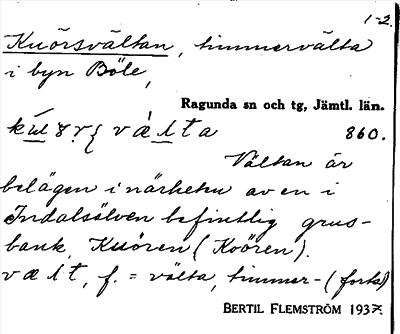 1-2.
Knörsvältan, timmervälta
i byn Böle,
Ragunda sn och tg, Jämtl. län.
vælta 860.
Vältan är
belägen i närheten av en i
Indalsälven befintlig grus-
bank, Knören (Kvören).
vælt, f. = välta, timmer- (forts)
BERTIL FLEMSTRÖM 1937.